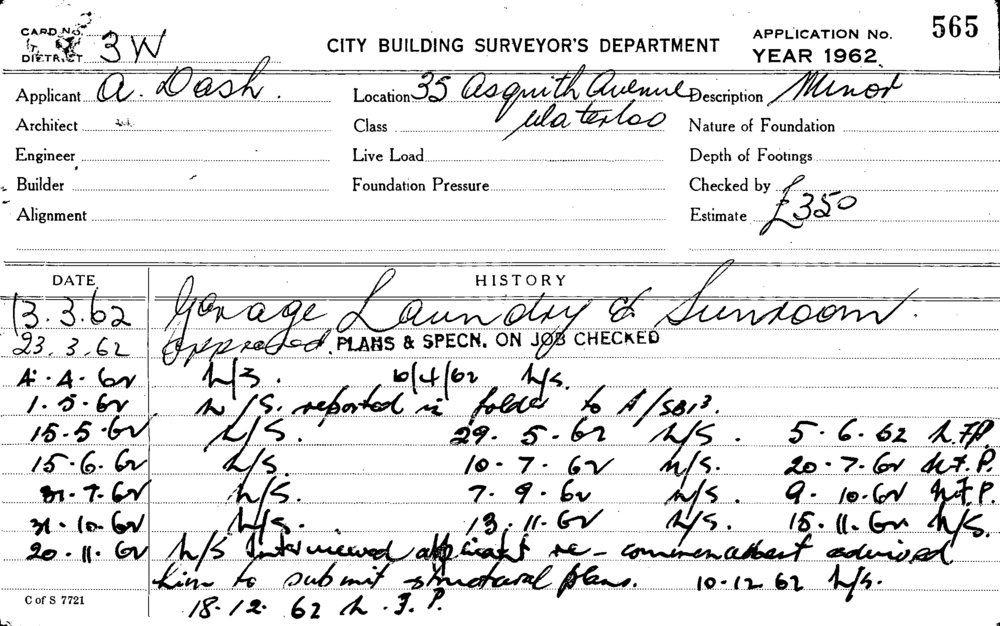 CARD No. 565
DISTRICT 3W CITY BUILDING SURVEYOR'S DEPARTMENT APPLICATION No. YEAR 1962
Applicant A. Dash. Location 35 Asquith Avenue Description Minor
Architect Class Waterloo Nature of Foundation
Engineer Live Load Depth of Footings
Builder Foundation Pressure Checked by
Alignment Estimate £350
DATE HISTORY
13.3.62 Garage Laundry & Sunroom.
23.3.62 Approved. PLANS & SPECN. ON JOB CHECKED
4.4.62 N/S. 10/4/62 N/S.
1.5.62 N/S. reported in folder to A/SBI3.
15.5.62 N/S. 29.5.62 N/S. 5.6.62 N.F.P.
15.6.62 N/S. 10.7.62 N/S. 20.7.62 N.F.P.
31.7.62 N/S. 7.9.62 N/S. 9.10.62 N.F.P.
31.10.62 N/S. 13.11.62 N/S. 15.11.62 N/S.
20.11.62 N/S Interviewed applicant re-commencement advised
him to submit structural plans. 10.12.62 N/S.
C of S 7721 18.12.62 N.F.P.